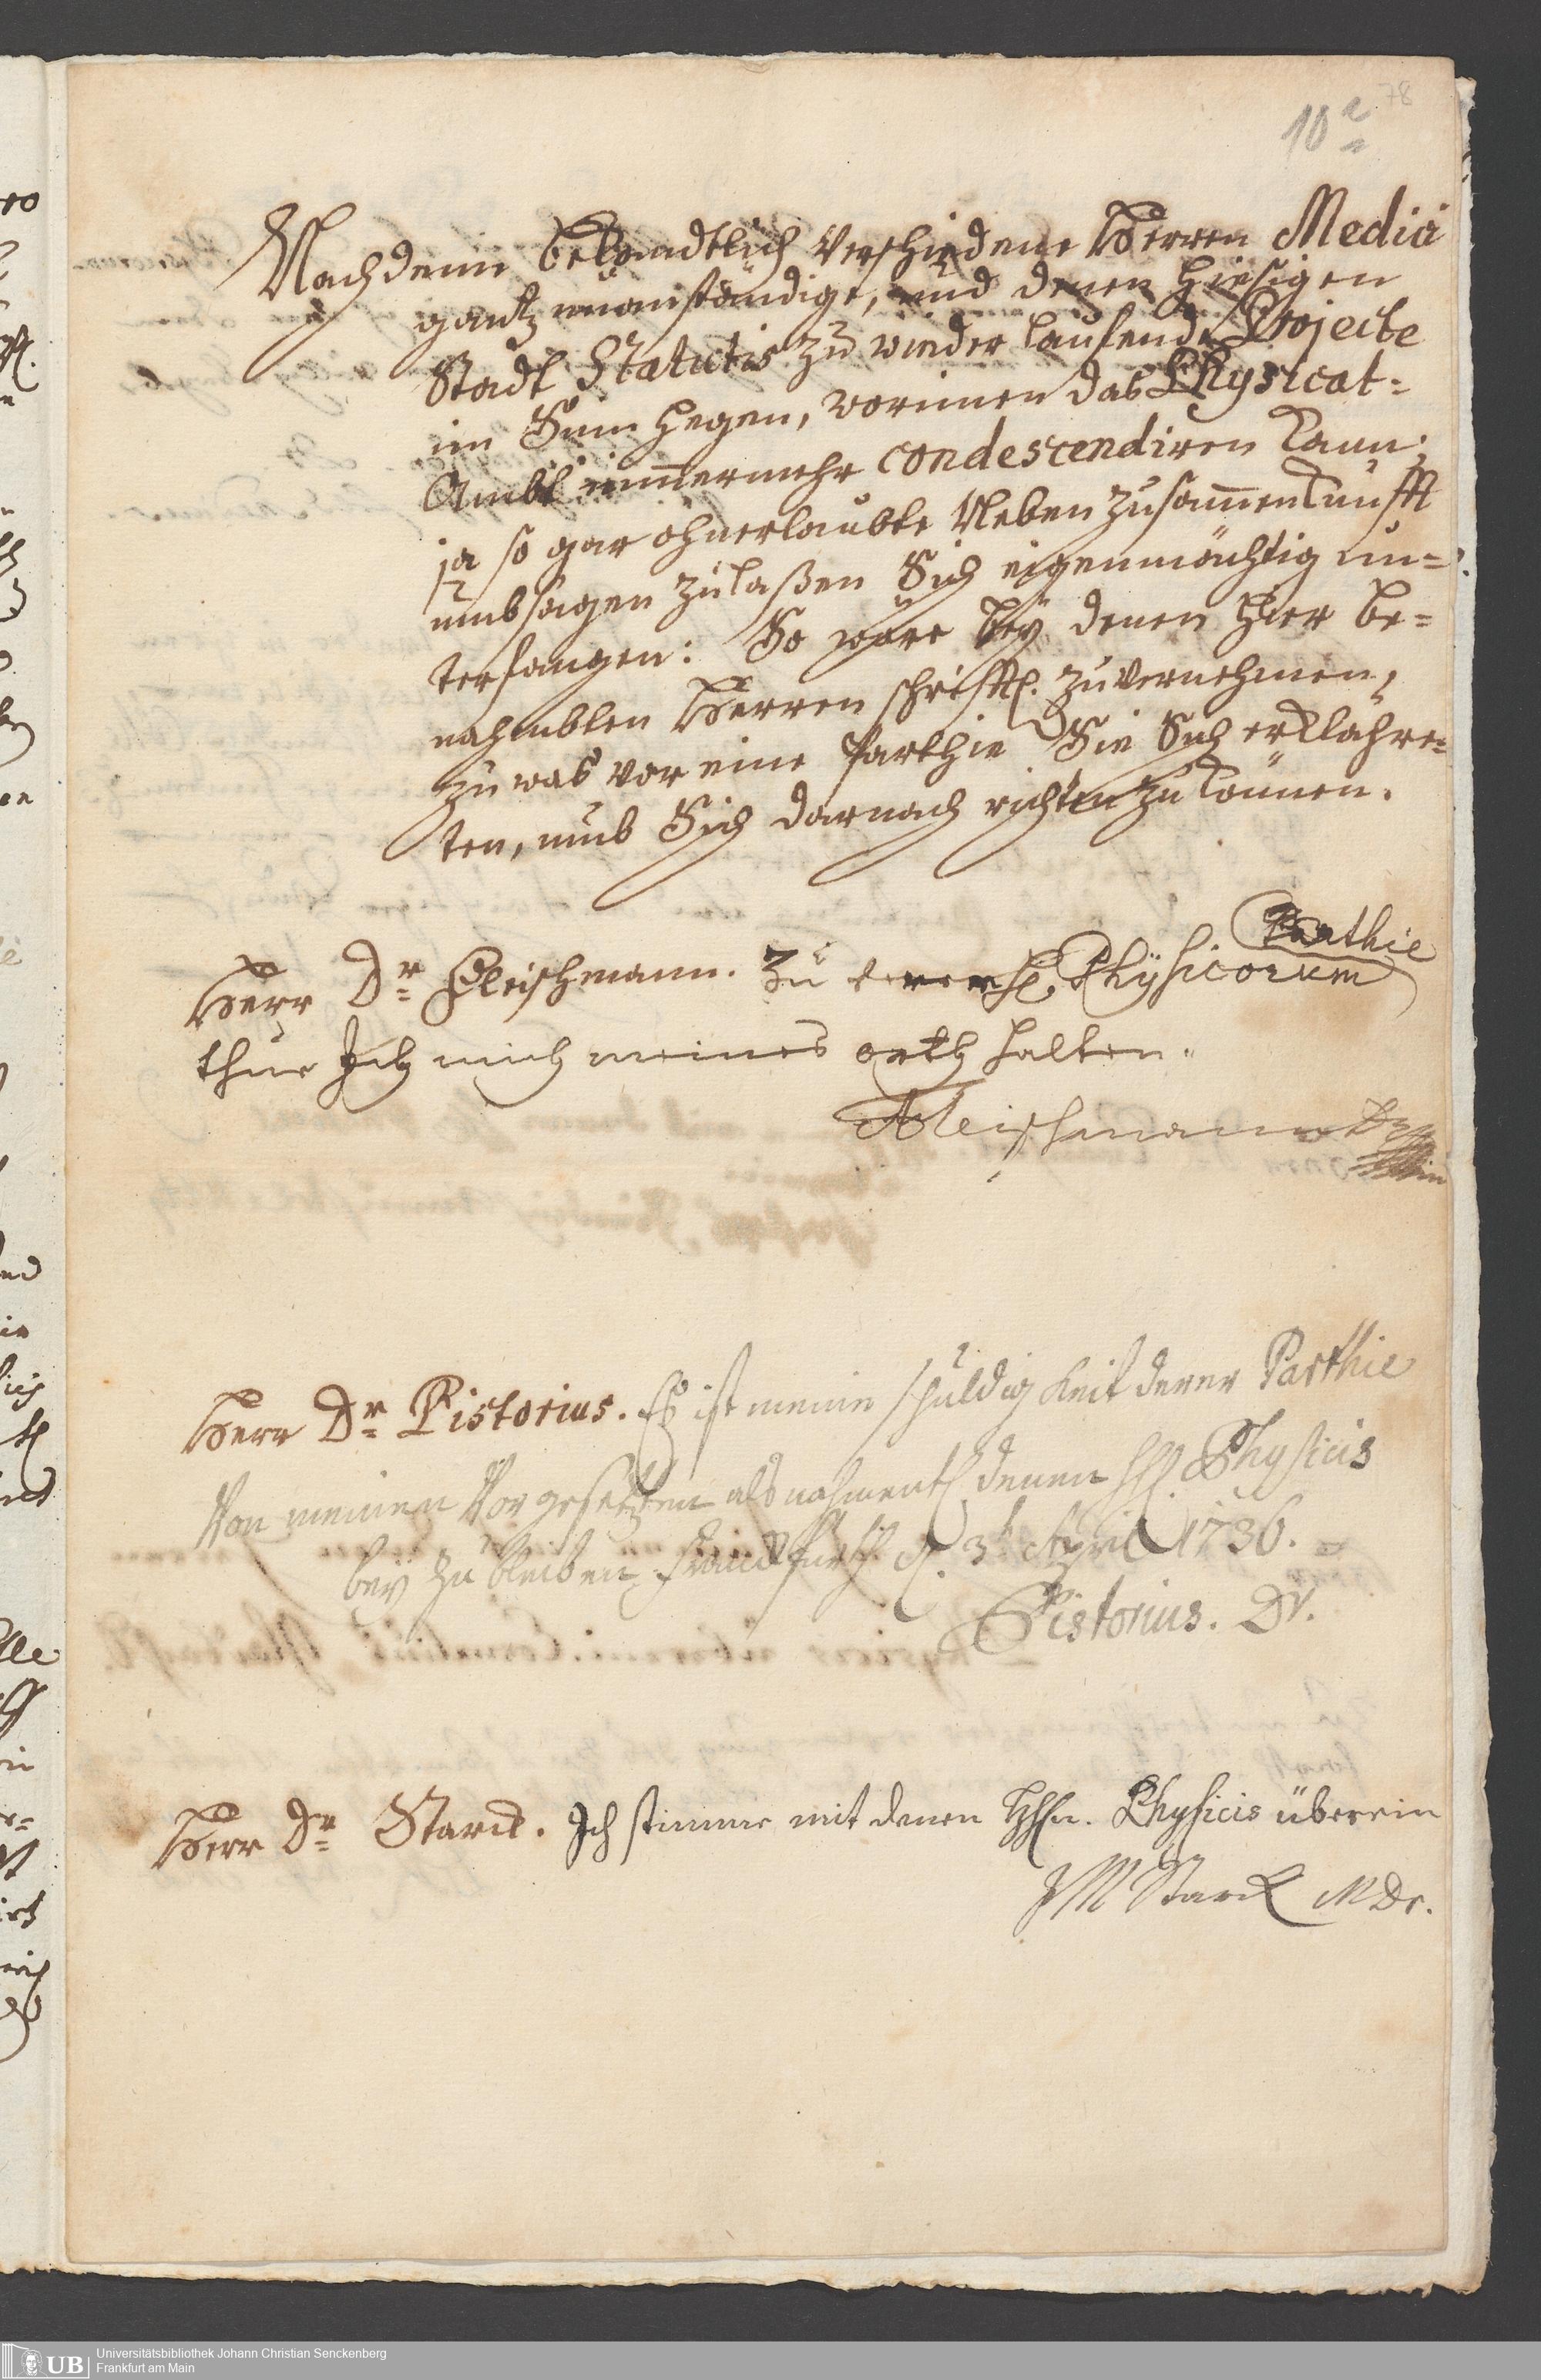 78
10
Nachdem bekandtlich verschiedene Herren Medici
gantz unanständige, und denen hiesigen
Stadt Statutis zu wieder laufende Projecte
im Sinn hegen, worinnen das Physicat-
Ambt nimmermehr condescendiren kann;
ja so gar ohnerlaubte Neben Zusam̄enkunfft
umbsagen zulaßen Sich eigenmächtig un-
terfangen: So wäre bey denen hier be-
nahmbten Herren schrifftl. zuvernehmen,
zu was vor eine Parthie Sie Sich erklähre-
ten, umb Sich darnach richten zu können.
Herr Dr Fleischmann. Zu derer H. Physicorum Parthie
thue Ich mich meines orth halten.
Fleischmann Dr
Herr Dr Pistorius. Es ist meine schuldigkeit derer Parthie
Von meinen Vorgesetzten als nahmentl denen HH Physicis
bey zu bleiben, Franckfurth d. 3t April 1736.
Pistorius. Dr.
Herr Dr Starck. Ich stimme mit denen HHn. Physicis überein
JM Starck MDr.
UB
Universitätsbibliothek Johann Christian Senckenberg
Frankfurt am Main